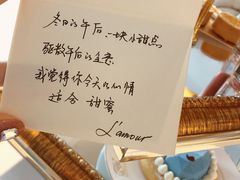 冬日的午后，一块小甜点
驱散午后的倦意
我觉得你今天的心情
适合 甜蜜
L'amour